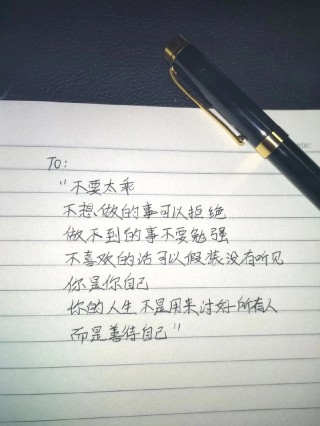 TO:
“不要太乖
不想做的事可以拒绝
做不到的事不要勉强
不喜欢的话可以假装没有听见
你是你自己
你的人生不是用来讨好所有人
而是善待自己”